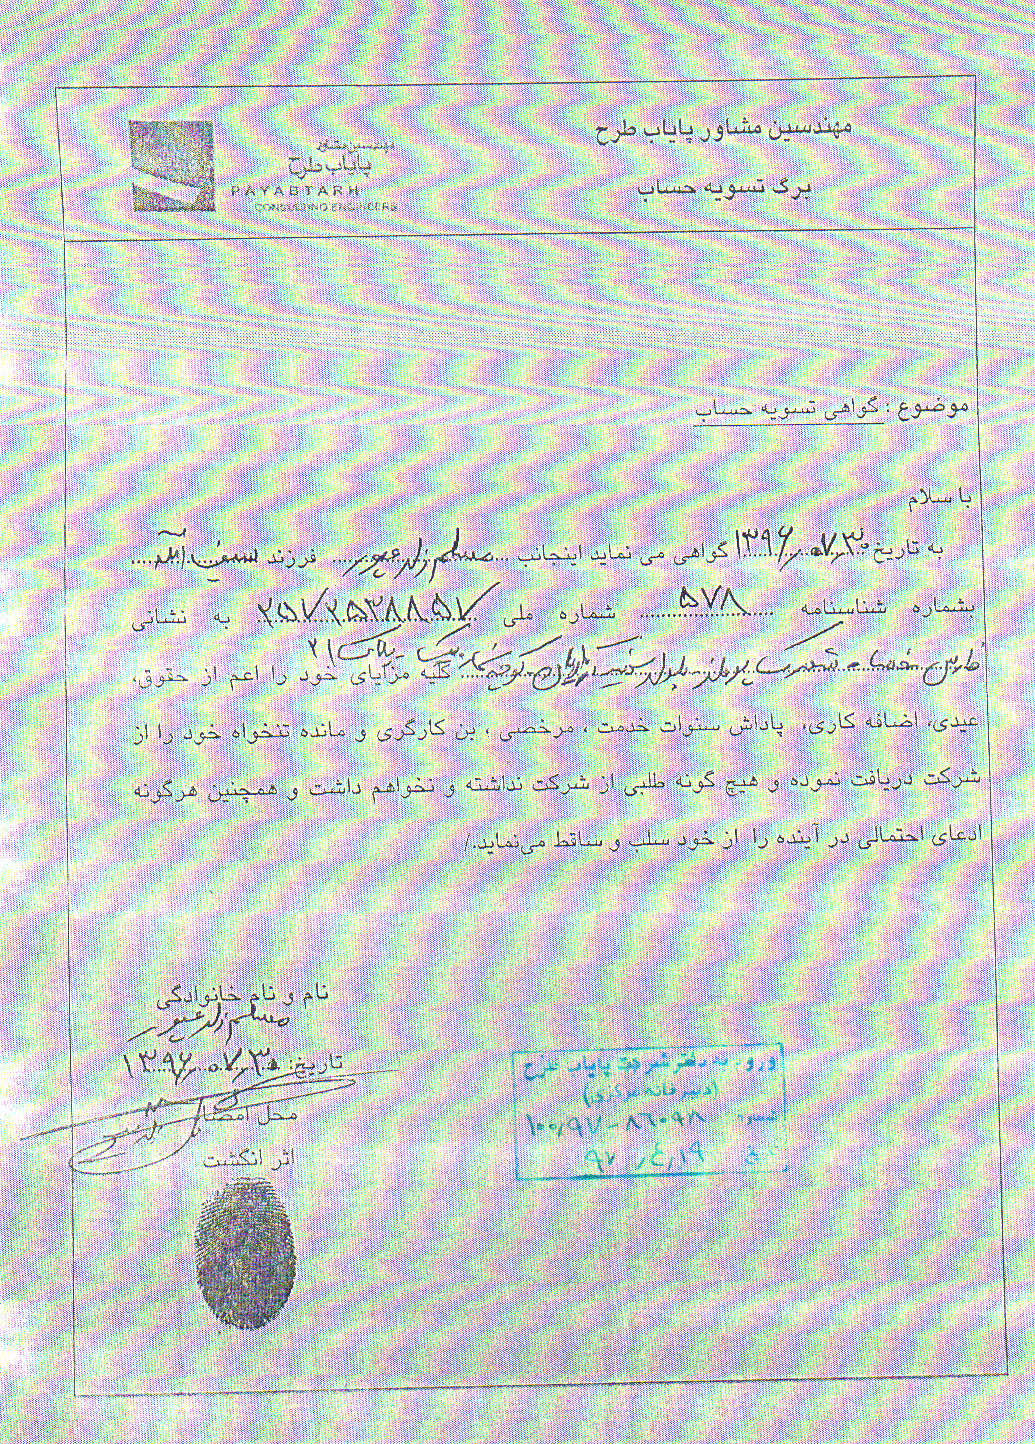 مهندسین مشاور پایاب طرح
برگ تسویه حساب
مهندسین مشاور
پایاب طرح
PAYABTARH
CONSULTING ENGINEERS
موضوع : گواهی تسویه حساب
با سلام
به تاریخ ۱۳۹۶/۰۷/۳۰ گواهی می نماید اینجانب مسلم فرزند
بشماره شناسنامه ۵۷۸ شماره ملی به نشانی
پلاک ۲۱ کلیه مزایای خود را اعم از حقوق،
عیدی، اضافه کاری، پاداش سنوات خدمت ، مرخصی ، بن کارگری و مانده تنخواه خود را از
شرکت دریافت نموده و هیچ گونه طلبی از شرکت نداشته و نخواهم داشت و همچنین هرگونه
ادعای احتمالی در آینده را از خود سلب و ساقط می‌نماید./
نام و نام خانوادگی
مسلم
تاریخ: ۱۳۹۶/۰۷/۳۰
محل امضا
اثر انگشت
ورود به دفتر شرکت پایاب طرح
(دبیرخانه مرکزی)
شماره ۱۰۰/۹۷-۸۶۰۹۸
تاریخ ۹۷/۴/۱۹